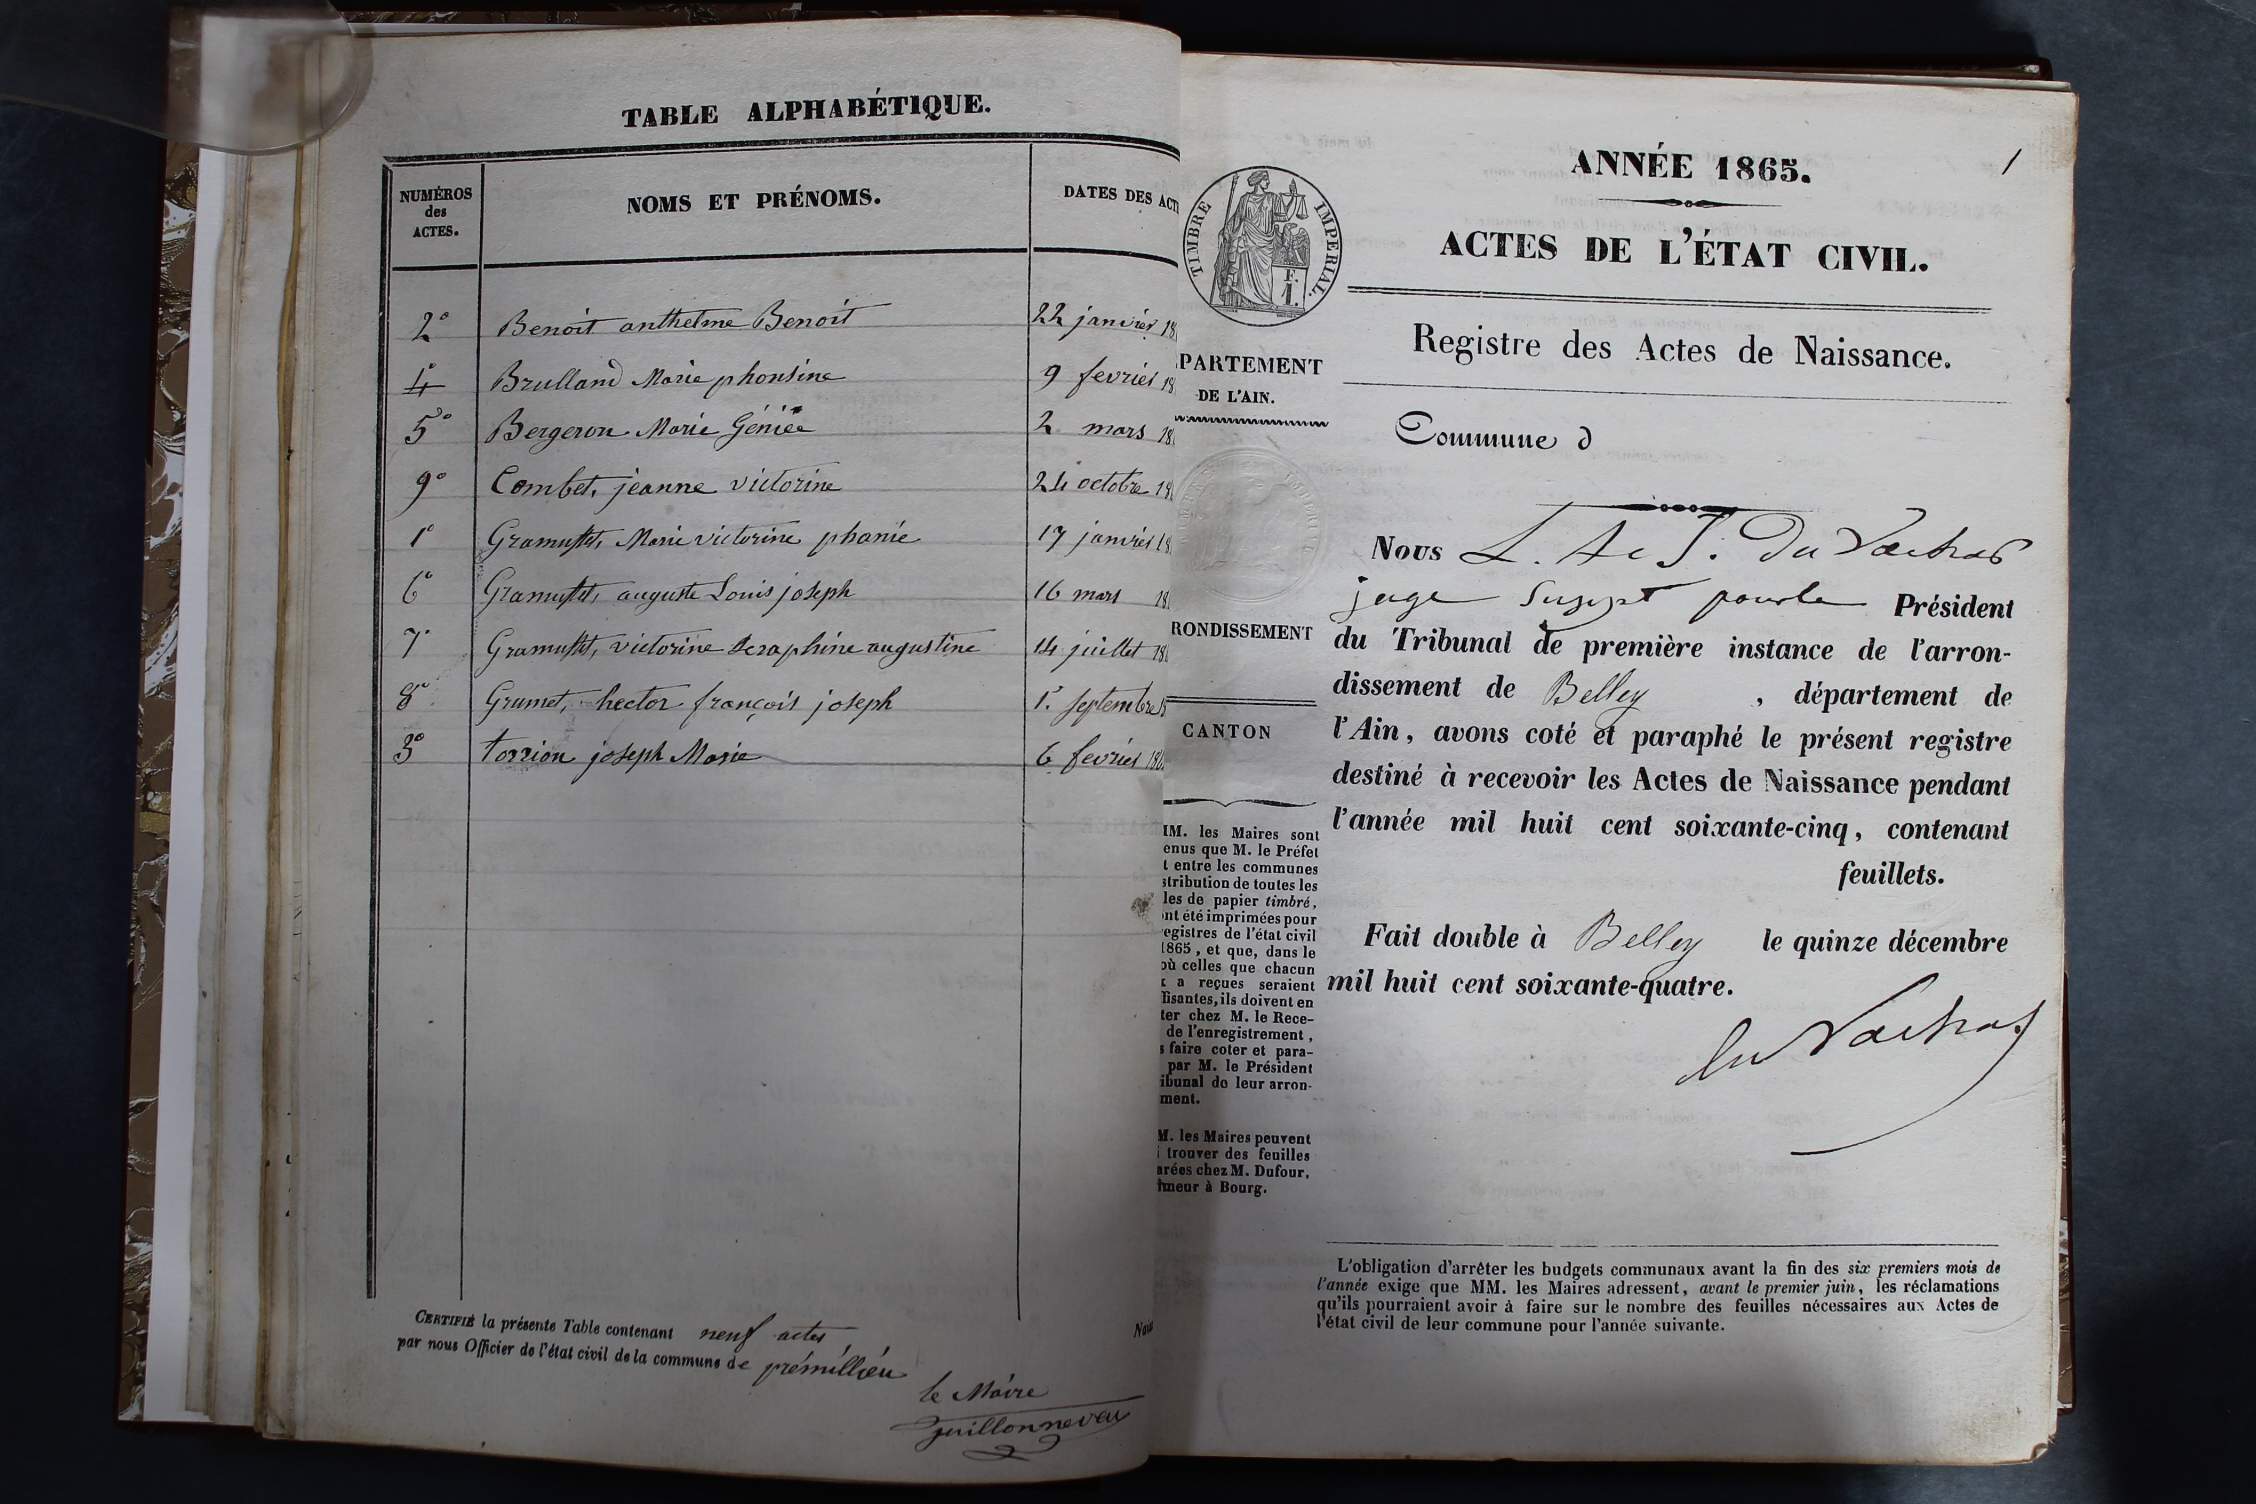 TABLE ALPHABÉTIQUE.
NUMÉROS
des
ACTES.
NOMS ET PRÉNOMS.
DATES DES ACT
2° Benoit anthelme Benoit 22 janvier 18
4° Brulland Marie phonsine 9 fevrier 18
5° Bergeron Marie Géniée 2 mars 18
9° Combet, jeanne victorine 24 octobre 18
1° Gramusset, Marie victorine phanie 17 janvier 18
6° Gramusset, auguste Louis joseph 16 mars 18
7° Gramusset, victorine seraphine augustine 14 juillet 18
8° Grumet, hector françois joseph 1er septembre 18
3° torrion joseph Marie 6 fevrier 186
CERTIFIÉ la présente Table contenant neuf actes
par nous Officier de l'état civil de la commune de prémillieu
le Maire
Guillonneveu
ANNÉE 1865.
1
ACTES DE L'ÉTAT CIVIL.
TIMBRE IMPERIAL.
F.
1.
Registre des Actes de Naissance.
PARTEMENT
DE L'AIN.
Commune d
RONDISSEMENT
CANTON
Nous L. A. J. Du Vachat
juge suppt pour le Président
du Tribunal de première instance de l'arron-
dissement de Belley , département de
l'Ain, avons coté et paraphé le présent registre
destiné à recevoir les Actes de Naissance pendant
l'année mil huit cent soixante-cinq, contenant
feuillets.
Fait double à Belley le quinze décembre
mil huit cent soixante-quatre.
du Vachat
IM. les Maires sont
enus que M. le Préfet
t entre les communes
stribution de toutes les
les de papier timbré,
ont été imprimées pour
registres de l'état civil
1865, et que, dans le
où celles que chacun
x a reçues seraient
ffisantes, ils doivent en
ter chez M. le Rece-
de l'enregistrement,
s faire coter et para-
par M. le Président
ibunal de leur arron-
ment.
M. les Maires peuvent
i trouver des feuilles
arées chez M. Dufour,
imeur à Bourg.
L'obligation d'arrêter les budgets communaux avant la fin des six premiers mois de
l'année exige que MM. les Maires adressent, avant le premier juin, les réclamations
qu'ils pourraient avoir à faire sur le nombre des feuilles nécessaires aux Actes de
l'état civil de leur commune pour l'année suivante.